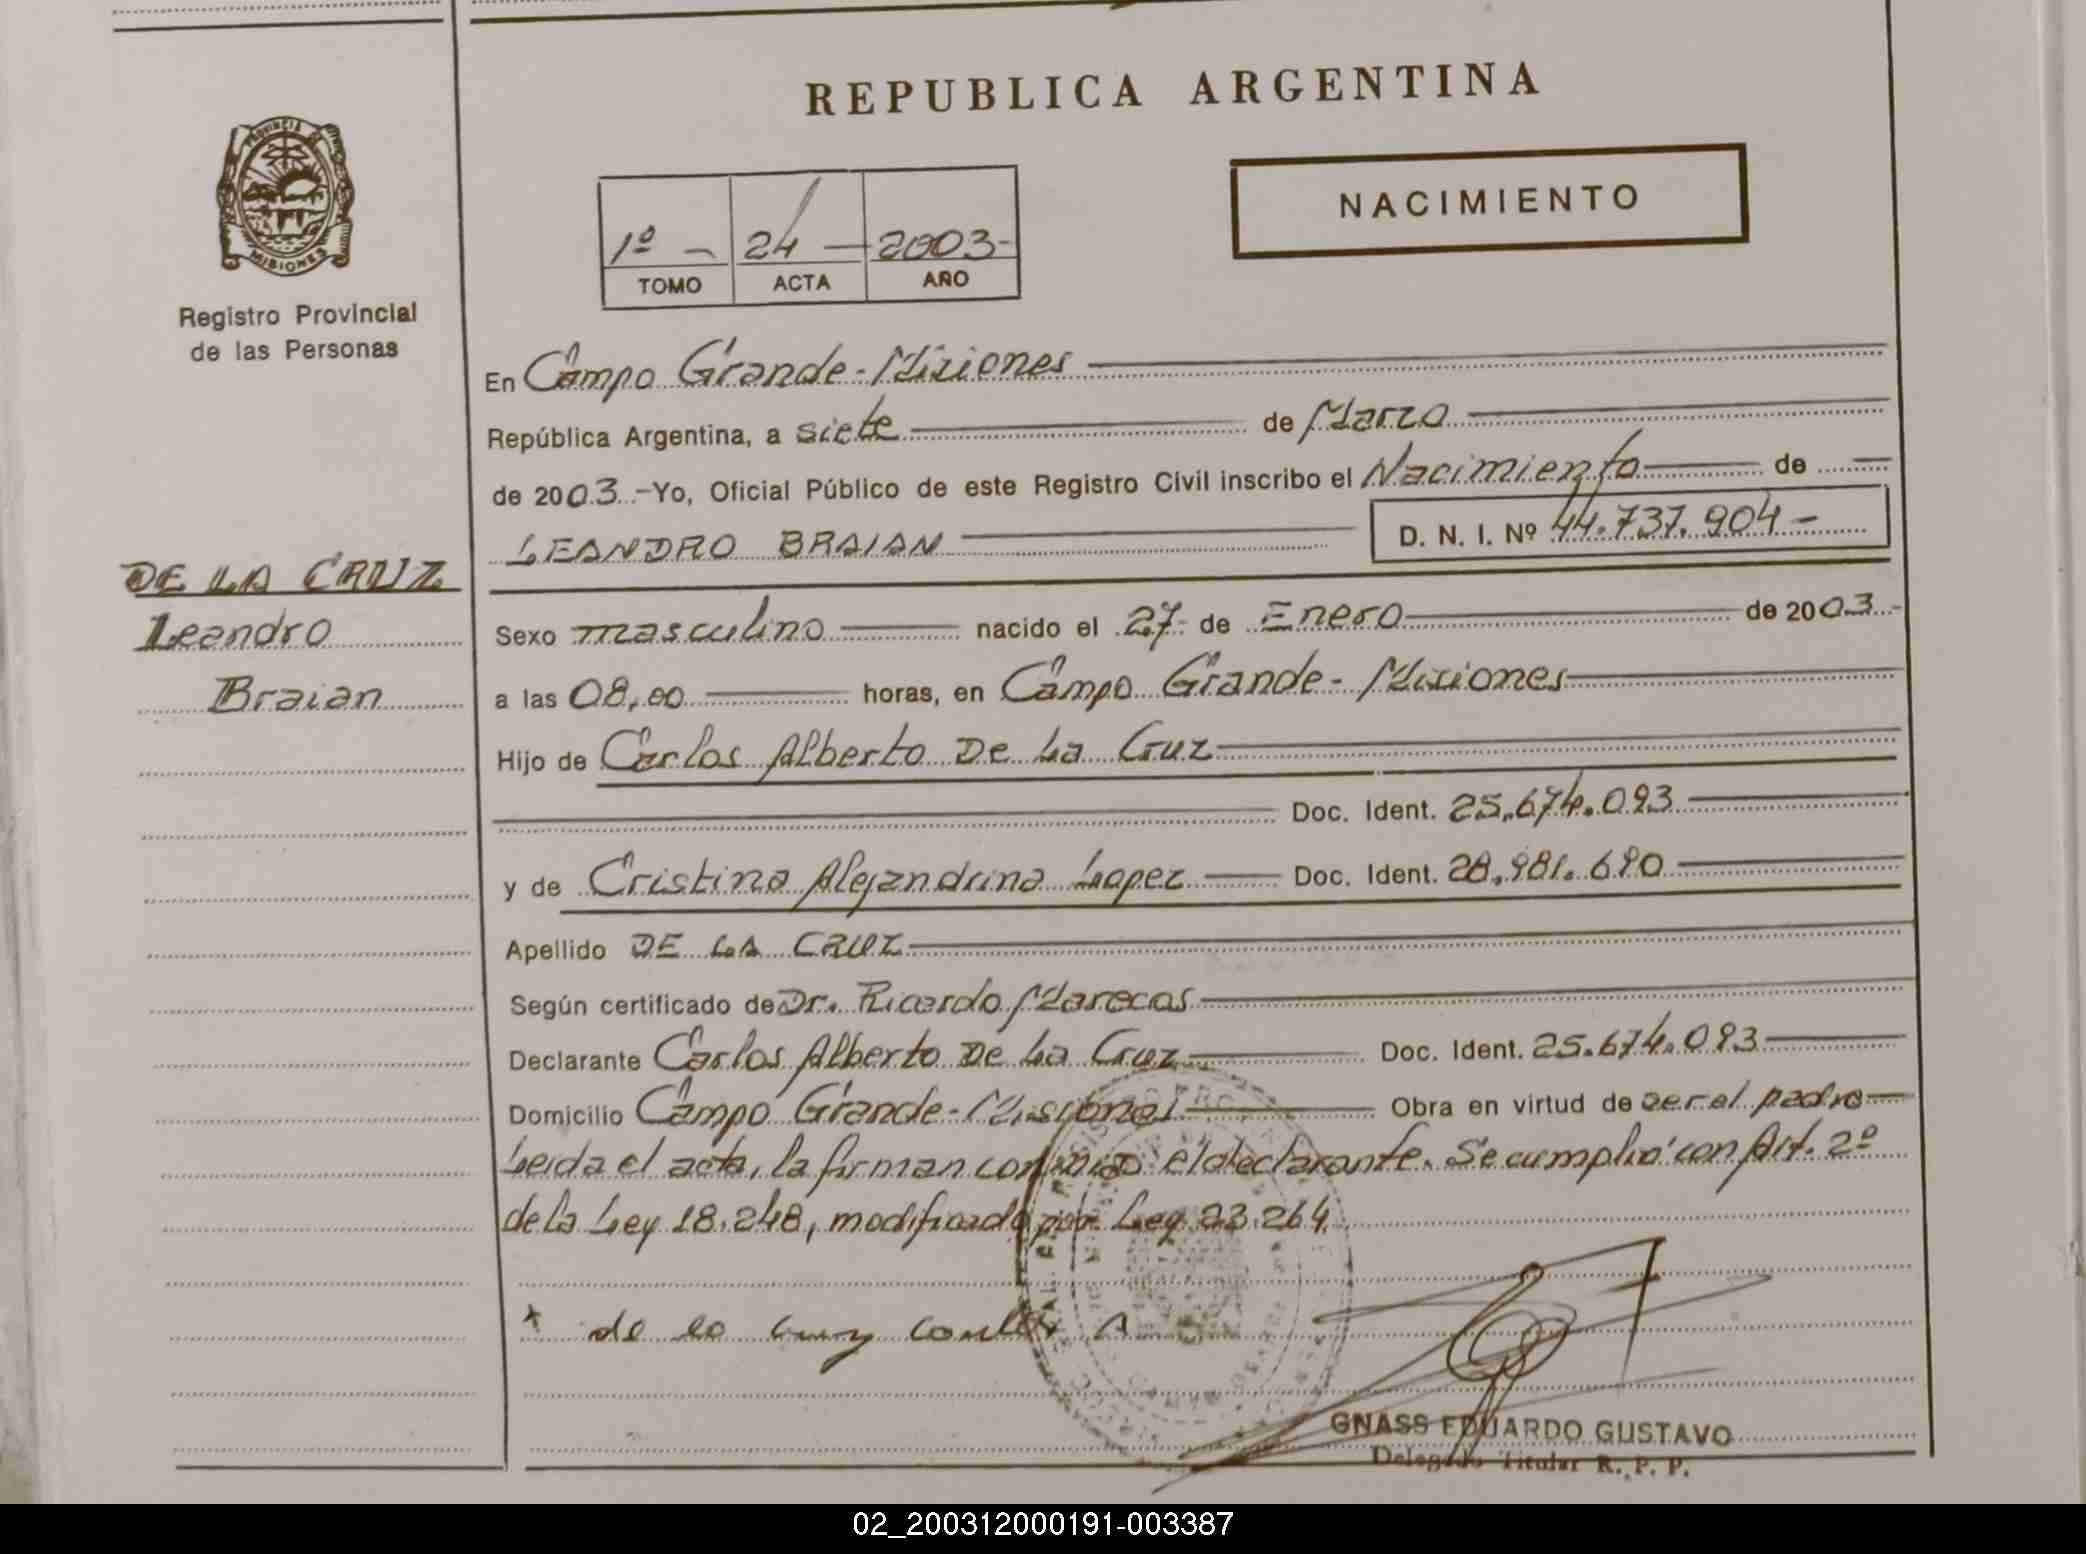 REPUBLICA ARGENTINA
NACIMIENTO
1º - 24 - 2003-
TOMO ACTA AÑO
PROVINCIA DE MISIONES
Registro Provincial
de las Personas
DE LA CRUZ
Leandro
Braian
En Campo Grande - Misiones
República Argentina, a siete de Marzo
de 2003.- Yo, Oficial Público de este Registro Civil inscribo el Nacimiento de
LEANDRO BRAIAN D. N. I. Nº 44.737.904-
Sexo masculino nacido el 27 de Enero de 2003.-
a las 08,00 horas, en Campo Grande - Misiones
Hijo de Carlos Alberto De La Cruz
Doc. Ident. 25.674.093
y de Cristina Alejandrina Lopez Doc. Ident. 28.981.690
Apellido DE LA CRUZ
Según certificado de Dr. Ricardo Marecos
Declarante Carlos Alberto De La Cruz Doc. Ident. 25.674.093
Domicilio Campo Grande - Misiones Obra en virtud de ser el padre
Leida el acta, la firman conmigo el declarante. Se cumplió con Art. 2º
de la Ley 18.248, modificado por Ley 23.264.
x de la Cruz Carlos A
GNASS EDUARDO GUSTAVO
Delegado Titular R. P. P.
02_200312000191-003387